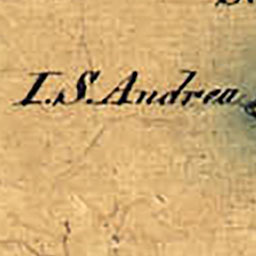 I.S. Andrea